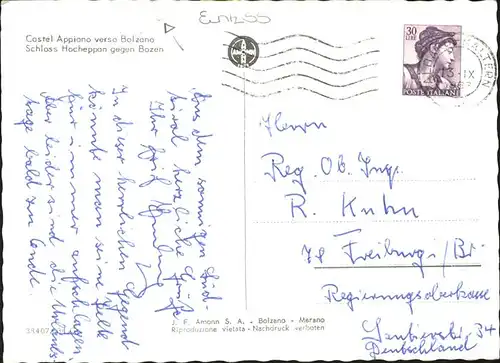 Castel Appiano verso Bolzano
Schloss Hocheppan gegen Bozen
30
LIRE
POSTE ITALIANE
Aus dem sonnigen Süd-
tirol herzliche Grüße
Ihr
In dieser herrlichen Gegend
könnte man seine Zelte
für immer aufschlagen.
Aber leider sind die Urlaubs-
tage bald zu Ende.
Herrn
Reg. Ob. Ing.
R. Kuhn
78 Freiburg/Br.
Regierungsoberkasse
34
Deutschland
J. F. Amonn S. A. - Bolzano - Merano
Riproduzione vietata - Nachdruck verboten